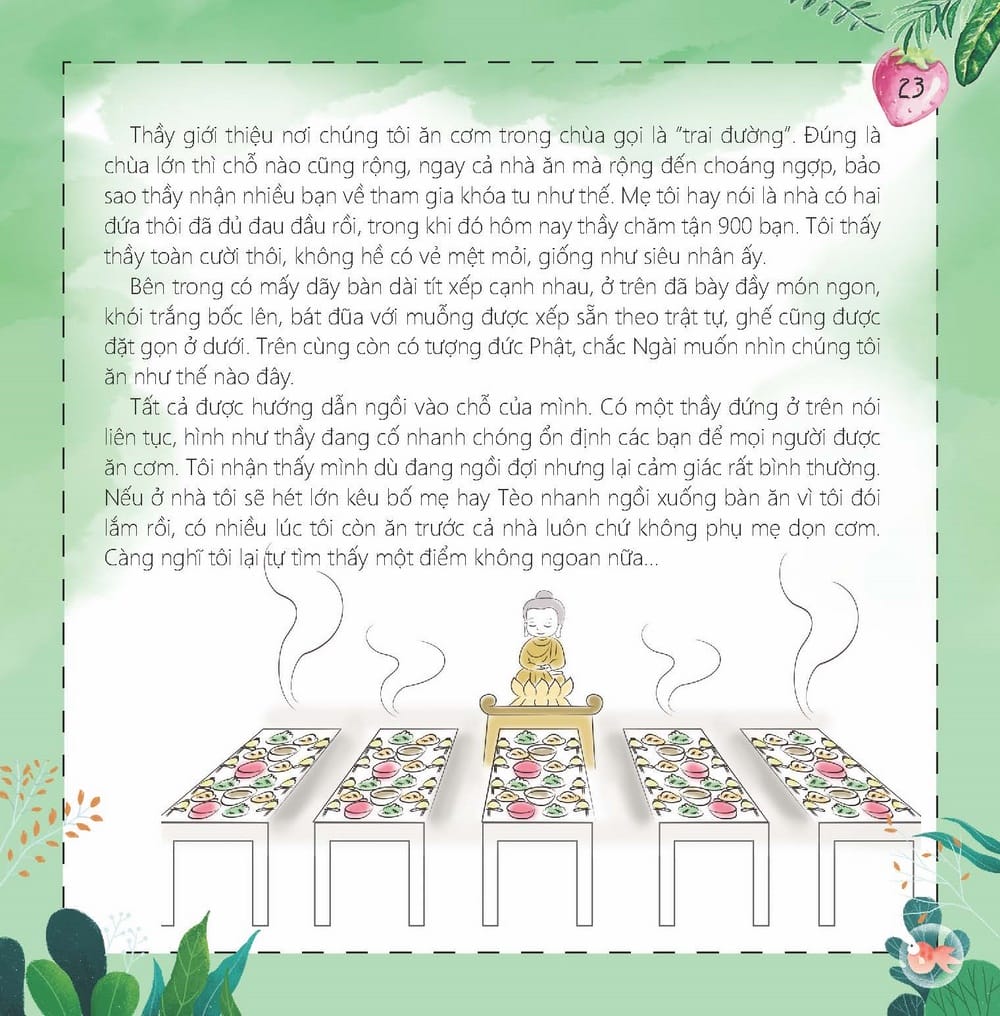 23
Thầy giới thiệu nơi chúng tôi ăn cơm trong chùa gọi là “trai đường”. Đúng là
chùa lớn thì chỗ nào cũng rộng, ngay cả nhà ăn mà rộng đến choáng ngợp, bảo
sao thầy nhận nhiều bạn về tham gia khóa tu như thế. Mẹ tôi hay nói là nhà có hai
đứa thôi đã đủ đau đầu rồi, trong khi đó hôm nay thầy chăm tận 900 bạn. Tôi thấy
thầy toàn cười thôi, không hề có vẻ mệt mỏi, giống như siêu nhân ấy.
Bên trong có mấy dãy bàn dài tít xếp cạnh nhau, ở trên đã bày đầy món ngon,
khói trắng bốc lên, bát đũa với muỗng được xếp sẵn theo trật tự, ghế cũng được
đặt gọn ở dưới. Trên cùng còn có tượng đức Phật, chắc Ngài muốn nhìn chúng tôi
ăn như thế nào đây.
Tất cả được hướng dẫn ngồi vào chỗ của mình. Có một thầy đứng ở trên nói
liên tục, hình như thầy đang cố nhanh chóng ổn định các bạn để mọi người được
ăn cơm. Tôi nhận thấy mình dù đang ngồi đợi nhưng lại cảm giác rất bình thường.
Nếu ở nhà tôi sẽ hét lớn kêu bố mẹ hay Tèo nhanh ngồi xuống bàn ăn vì tôi đói
lắm rồi, có nhiều lúc tôi còn ăn trước cả nhà luôn chứ không phụ mẹ dọn cơm.
Càng nghĩ tôi lại tự tìm thấy một điểm không ngoan nữa...